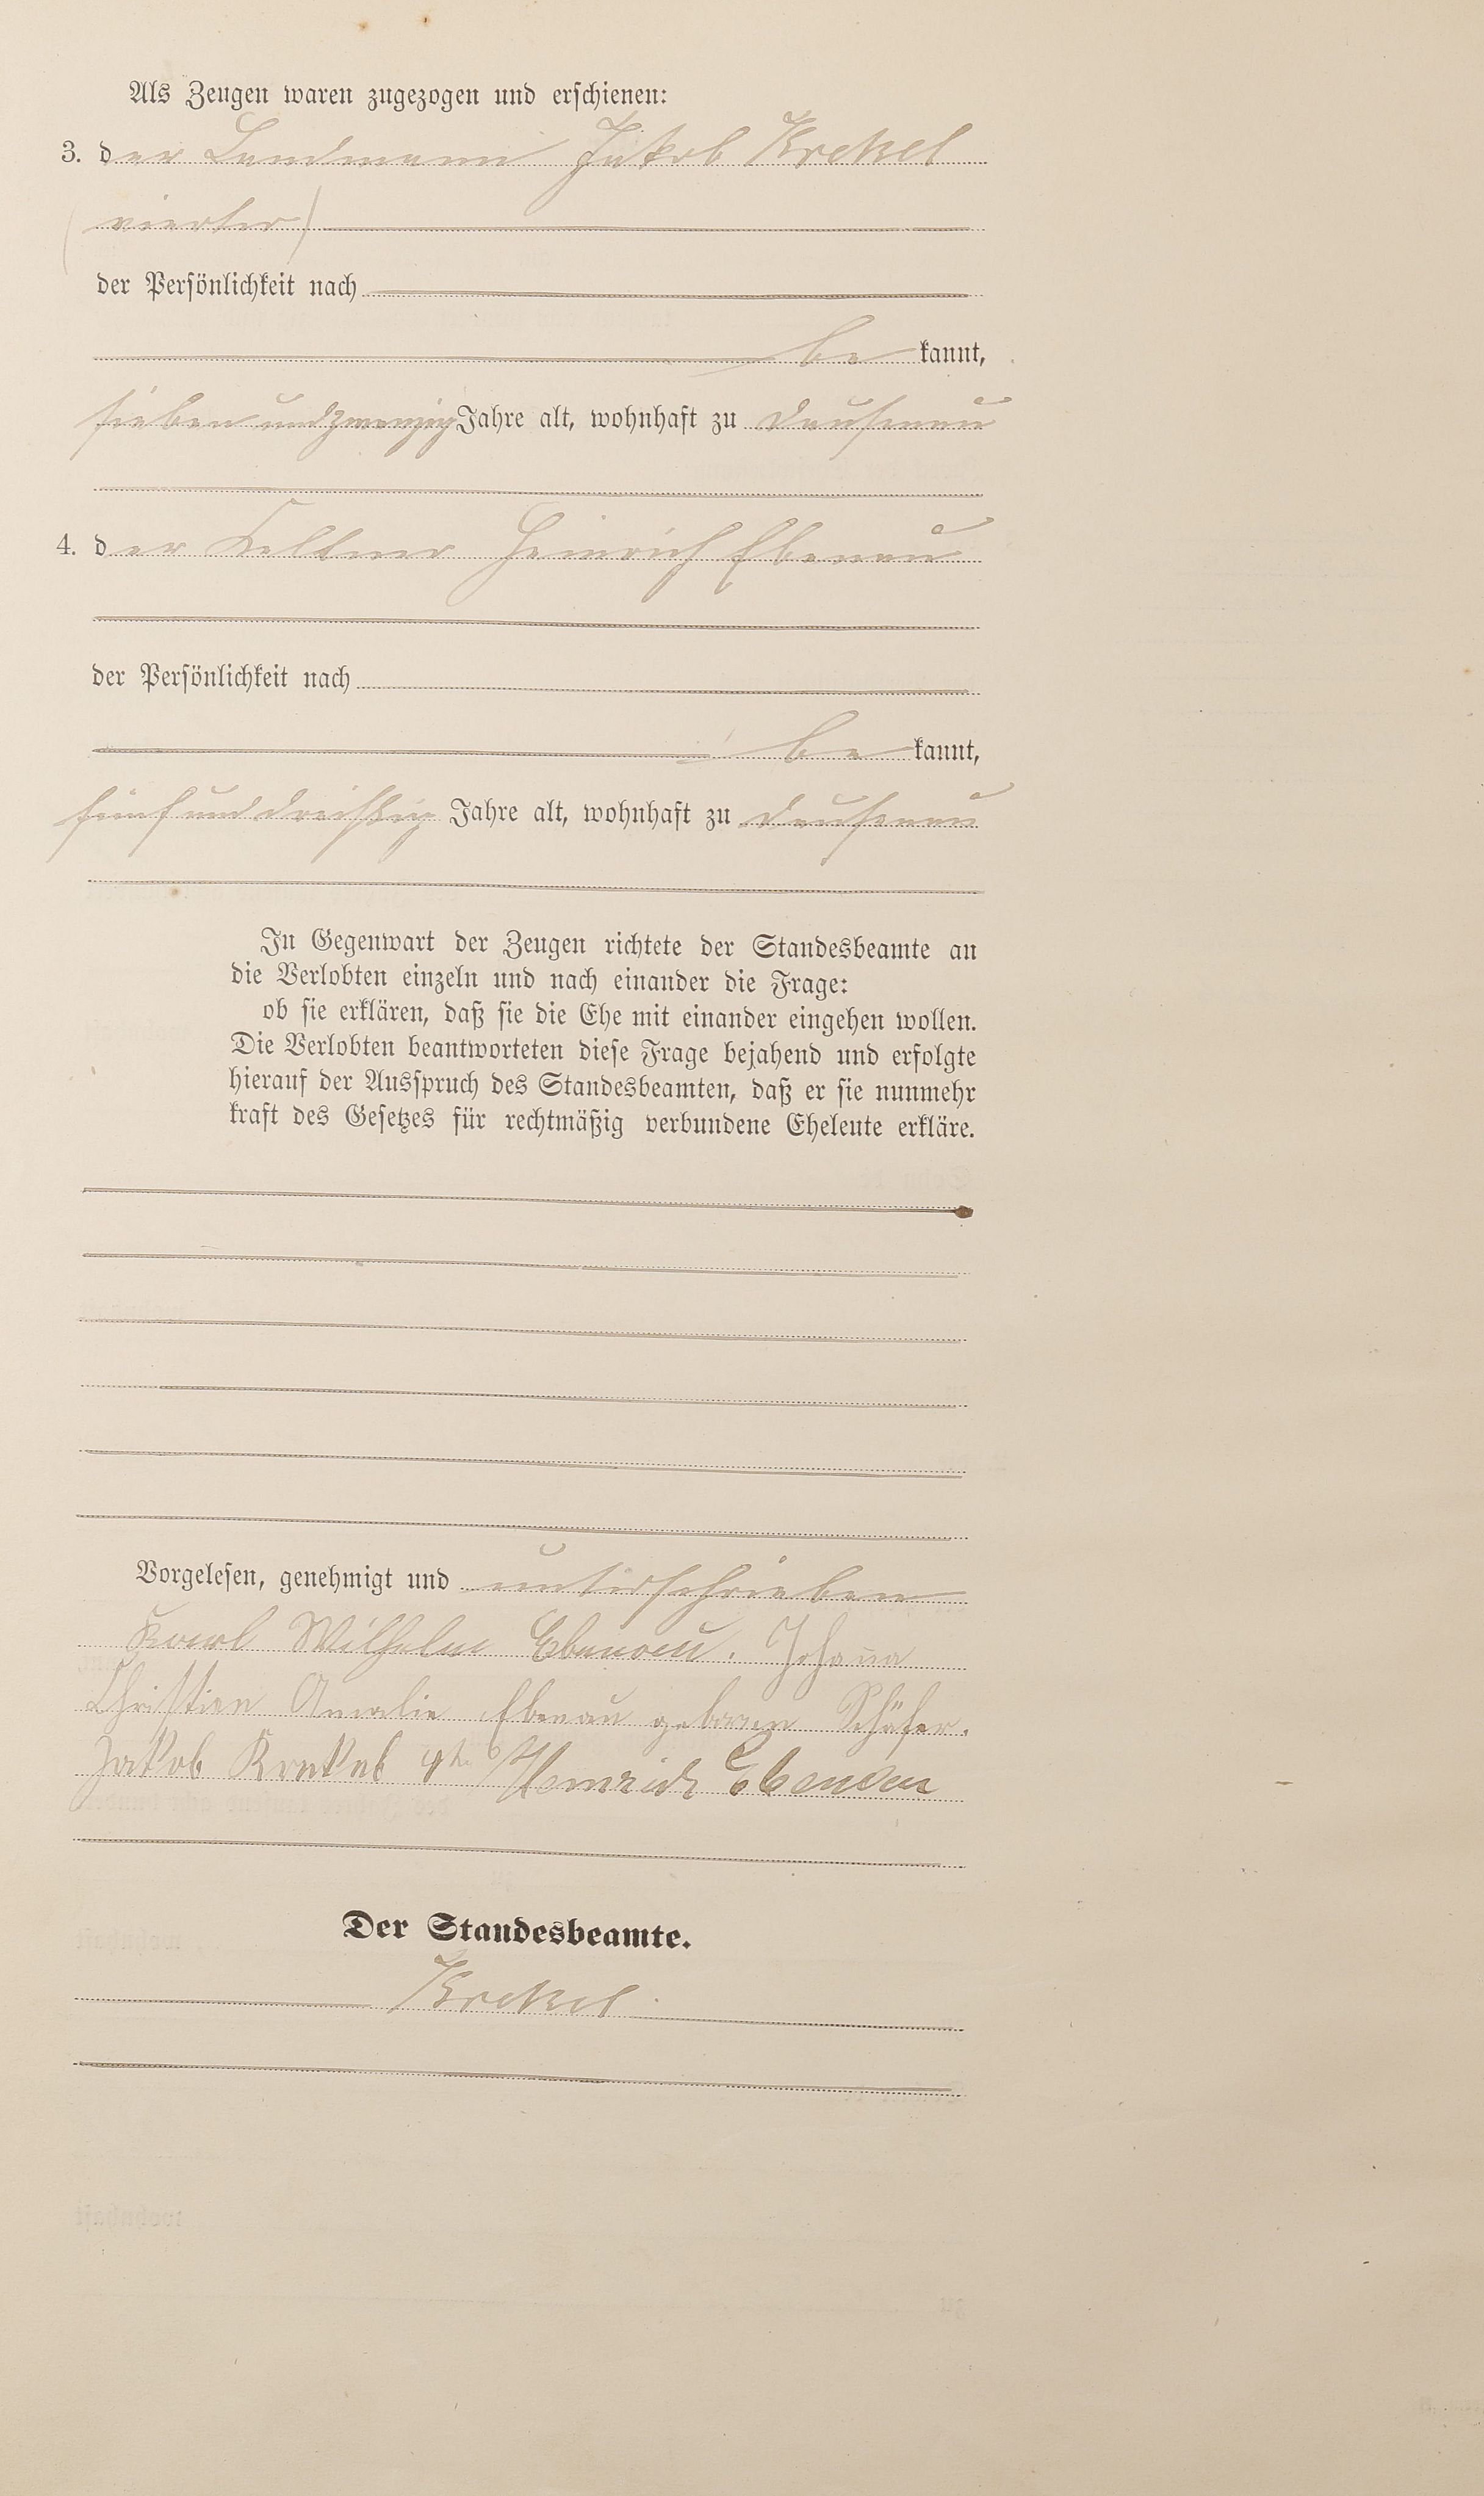 Als Zeugen waren zugezogen und erschienen:
3. der Landmann Jakob Krekel
(vierter)
der Persönlichkeit nach
be kannt,
siebenundzwanzig Jahre alt, wohnhaft zu Dausenau
4. der Kellner Heinrich Ebenau
der Persönlichkeit nach
be kannt,
fünfunddreißig Jahre alt, wohnhaft zu Dausenau
In Gegenwart der Zeugen richtete der Standesbeamte an
die Verlobten einzeln und nach einander die Frage:
ob sie erklären, daß sie die Ehe mit einander eingehen wollen.
Die Verlobten beantworteten diese Frage bejahend und erfolgte
hierauf der Ausspruch des Standesbeamten, daß er sie nunmehr
kraft des Gesetzes für rechtmäßig verbundene Eheleute erkläre.
Vorgelesen, genehmigt und unterschrieben
Karl Wilhelm Ebenau. Johana
Christien Amalie Ebenau geboren Schäfer.
Jakob Krekel 4te Heinrich Ebenau
Der Standesbeamte.
Krekel.